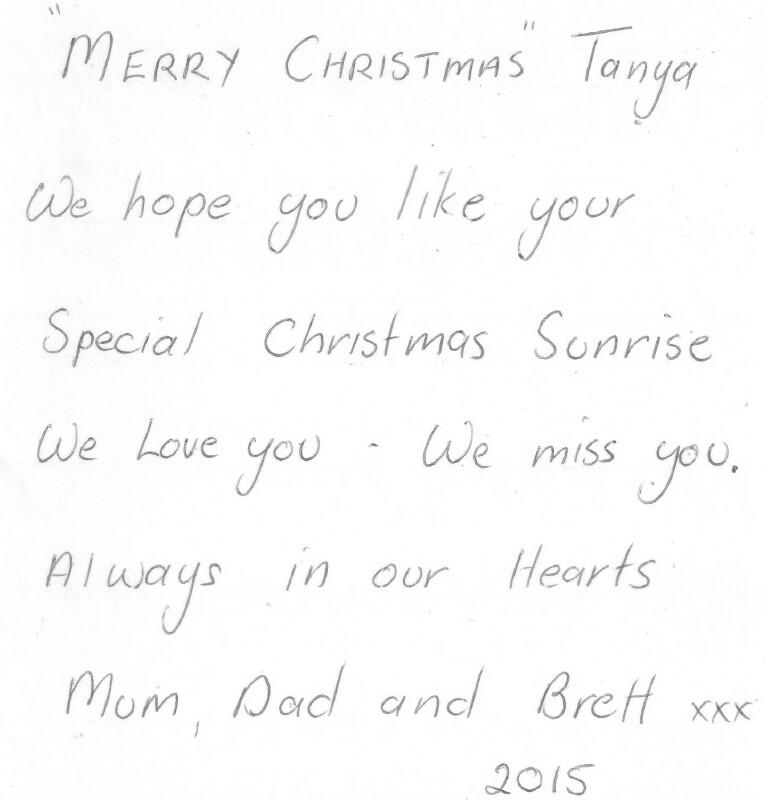 "MERRY CHRISTMAS" Tanya
We hope you like your
Special Christmas Sunrise
We Love you - We miss you.
Always in our Hearts
Mum, Dad and Brett xxx
2015